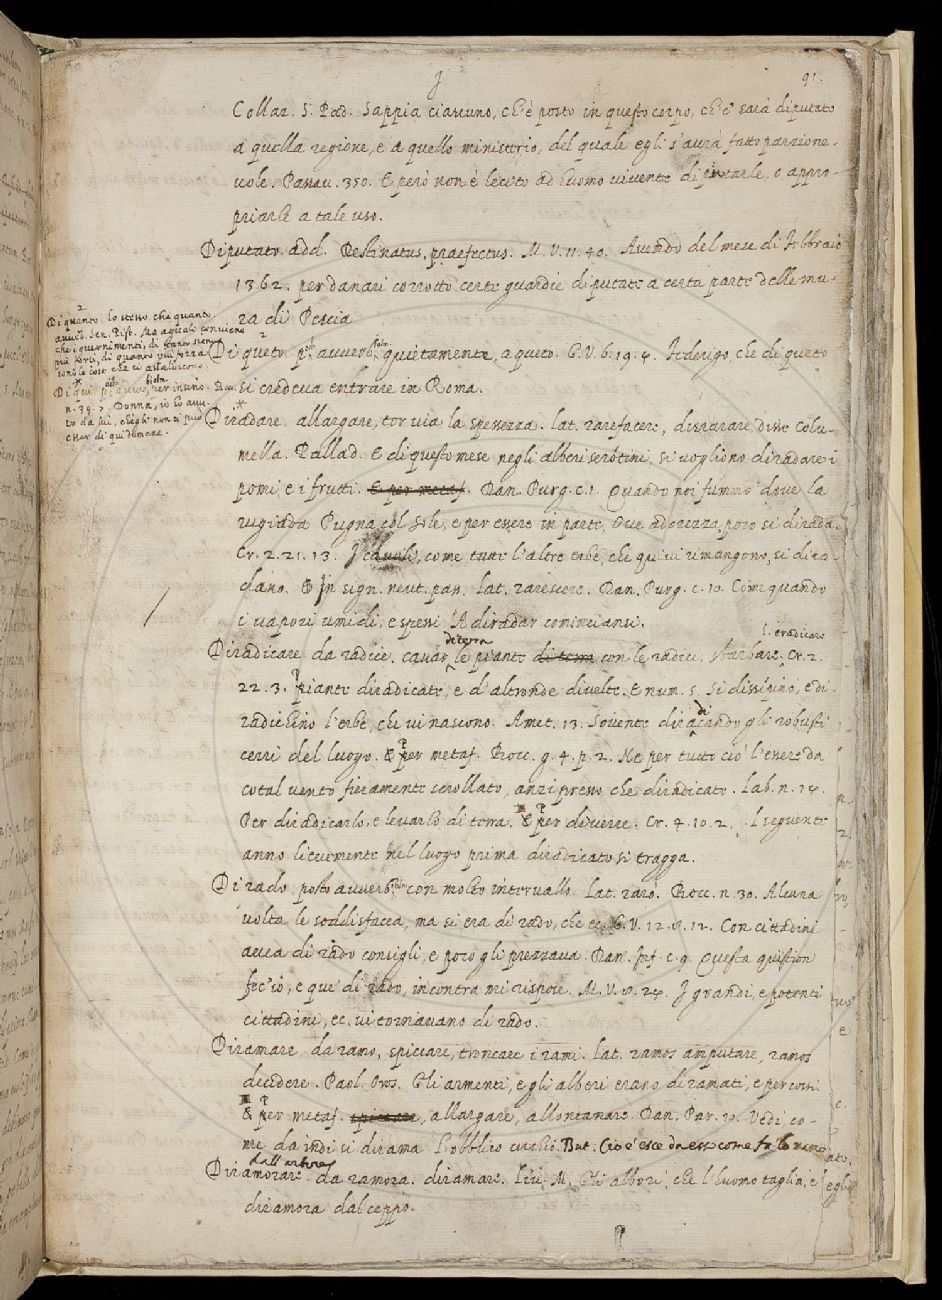 J
91.
Collaz. S. Pad. Sappia ciascuno, ch'è posto in questo corpo, ch'e' sarà diputato
a quella regione, e a quello ministerio, del quale egli s'avrà fatto parzione-
vole. Passav. 350. E però non è lecito ad huomo vivente di piccarle, o appro-
priarle a tale uso.
Diputato. add. Destinatus, praefectus. M. V. 11. 40. Avendo del mese di Febbraio
1362. per danari corrotto certe guardie diputate a certa parte delle mu-
ra di Pescia
2
Di quanto. lo stesso che quanto.
avverb. Sen. Pist. Ma a quali convieno
che i guernimenti, di tanto sieno
più forti, di quanto più forza
sono le cose che ci assaliscono.
Di qui. posto avverb. per in uno. Bocc.
n. 39. 7. Donna, io ho avu-
to da lui, ch'egli non ci può
esser di qui domane.
Di queto posto avverb. quietamente, a queto. G. V. 6. 19. 4. Federigo, che di queto
si credeva entrare in Roma.
Diradare. allargare, tor via la spessezza. lat. rarefacere, disrarare, disse Colu-
mella. Pallad. E di questo mese negli alberi serotini, si vogliono diradare i
pomi, e i frutti. E per metaf. Dan. Purg. c. 1. Quando noi fummo dove la
rugiada Pugna col Sole, e per essere in parte, Ove adorezza, poco si dirada.
Cr. 2. 21. 13. I cavoli, come tutte l'altre erbe, che quivi rimangono, si dira-
dano. E In sign. neut. pass. lat. rarescere. Dan. Purg. c. 10. Come quando
i vapori umidi, e spessi A diradar cominciansi.
l. eradicare
di terra
Diradicare da radice. cavar le piante di terra con le radici, sbarbare. Cr. 2.
22. 3. Piante diradicate, e d'altronde divelte. E num. 5. Si dissipino, e di-
radichino l'erbe, che vi nascono. Amet. 13. Sovente diradicando gli robusti
cerri del luogo. E Per metaf. Bocc. g. 4. p. 2. Ne per tutto ciò l'essere da
cotal vento fieramente scrollato, anzi presso che diradicato. Lab. n. 14.
Per diradicarlo, e levarlo di terra. E Per diverre. Cr. 4. 10. 2. L seguente
anno lievemente nel luogo prima diradicato si tragga.
Di rado, posto avverb. con molto intervallo. Lat. raro. Bocc. n. 30. Alcuna
volta le soddisfacea, ma si era di rado, che ec. G. V. 12. 8. 12. Con cittadini
avea di rado consigli, e poco gli prezzava. Dan. Inf. c. 9. Questa quistion
fec'io, e que' di rado, incontra mi rispose. M. V. 8. 24. I grandi, e potenti
cittadini, ec. vi tornavano di rado.
Diramare da ramo, spiccare, troncare i rami. lat. ramos amputare, ramos
decidere. Paol. Oros. Gli armenti, e gli alberi erano diramati, e percossi.
E Per metaf. spiccare, allargare, allontanare. Dan. Par. 10. Vedi, co-
me da indi si dirama L'obblico cerchio. But. Cioè esce da esso come fa lo ramo
dall'arbore
Diramorare. da ramora. diramare. Liv. M. Gli albori, che l'huomo taglia, e
diramora dal ceppo.